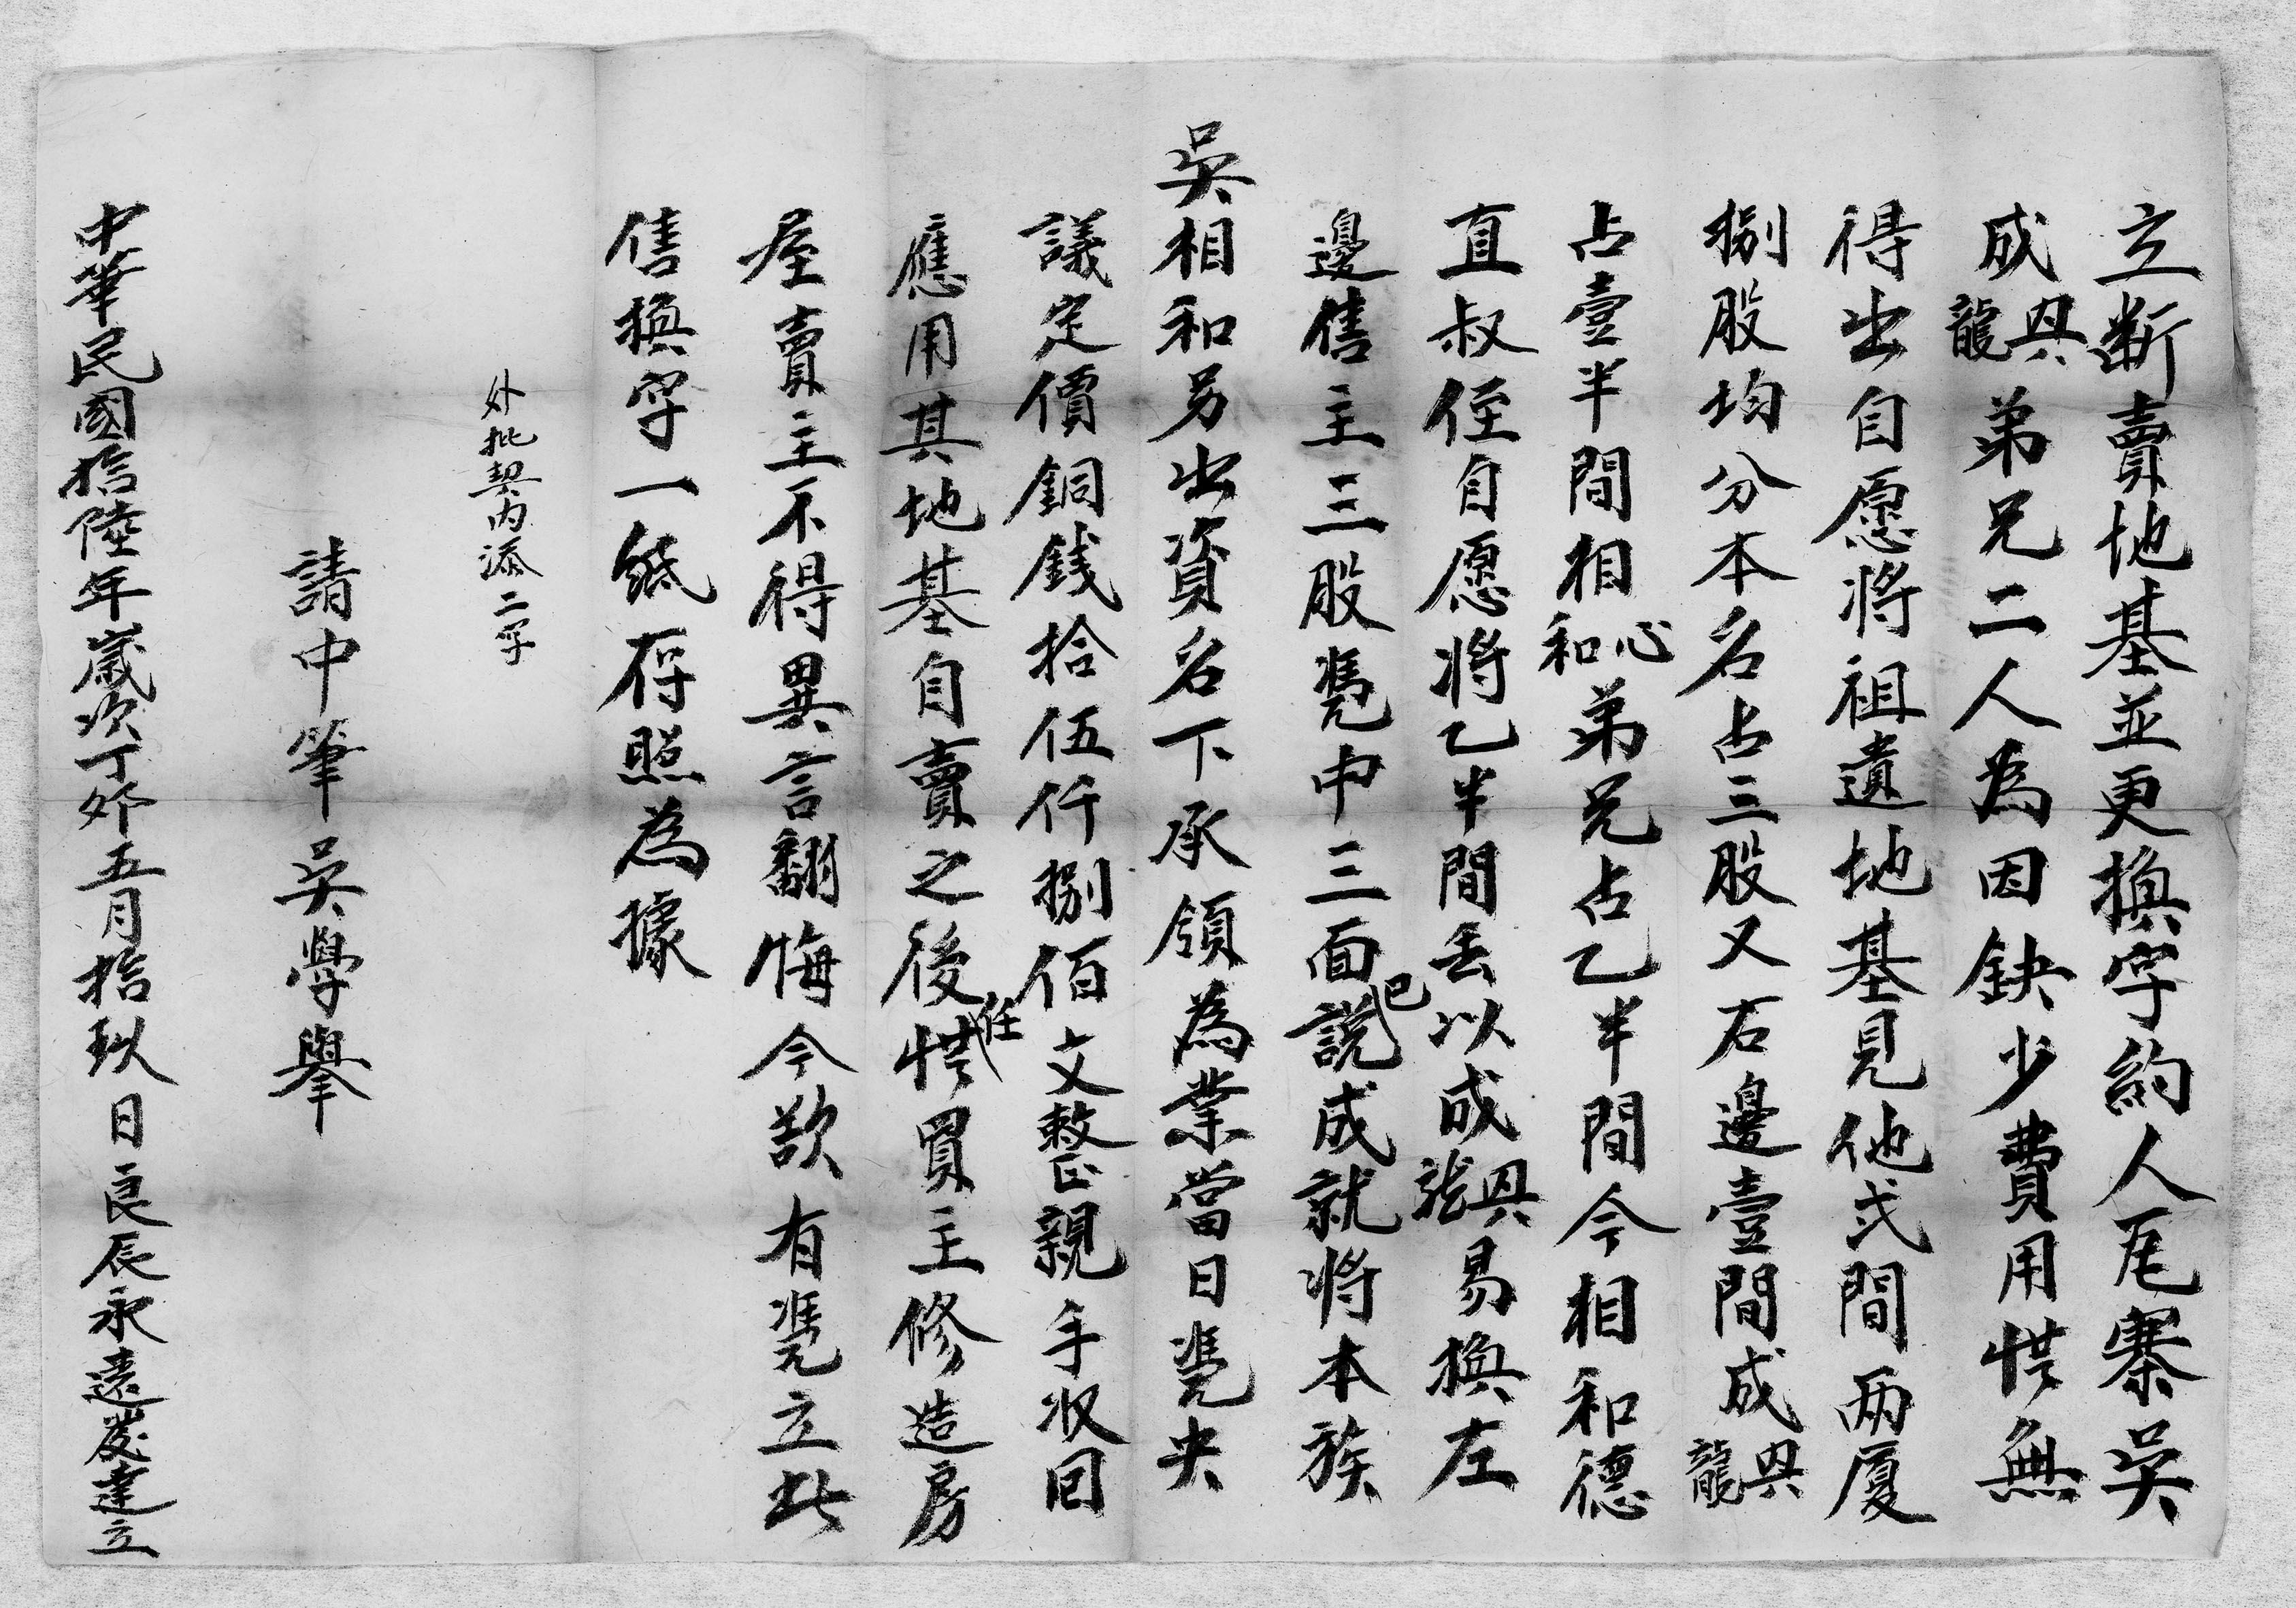 立断賣地基並更換字約人厇寨吳
成恩龍弟兄二人為因缺少費用惜無
得出自愿將祖遺地基見他弍間两廈
捌股均分本名占三股又右邊壹間成恩龍
占壹半間相心和弟兄占乙半間今相和德
直叔侄自愿將乙半間丢以成恩龍易換左
邊售主三股凴中三面已說成就將本族
吳相和另出資名下承領為業當日凴央
議定價銅銭拾伍仟捌佰文整親手収回
應用其地基自賣之後任惜買主修造房
屋賣主不得異言翻悔今欲有凴立此
售換字一紙存照為據
外批契内添二字
請中筆吳學舉
中華民國拾陸年歲次丁夘五月拾玖日良辰永遠發達立